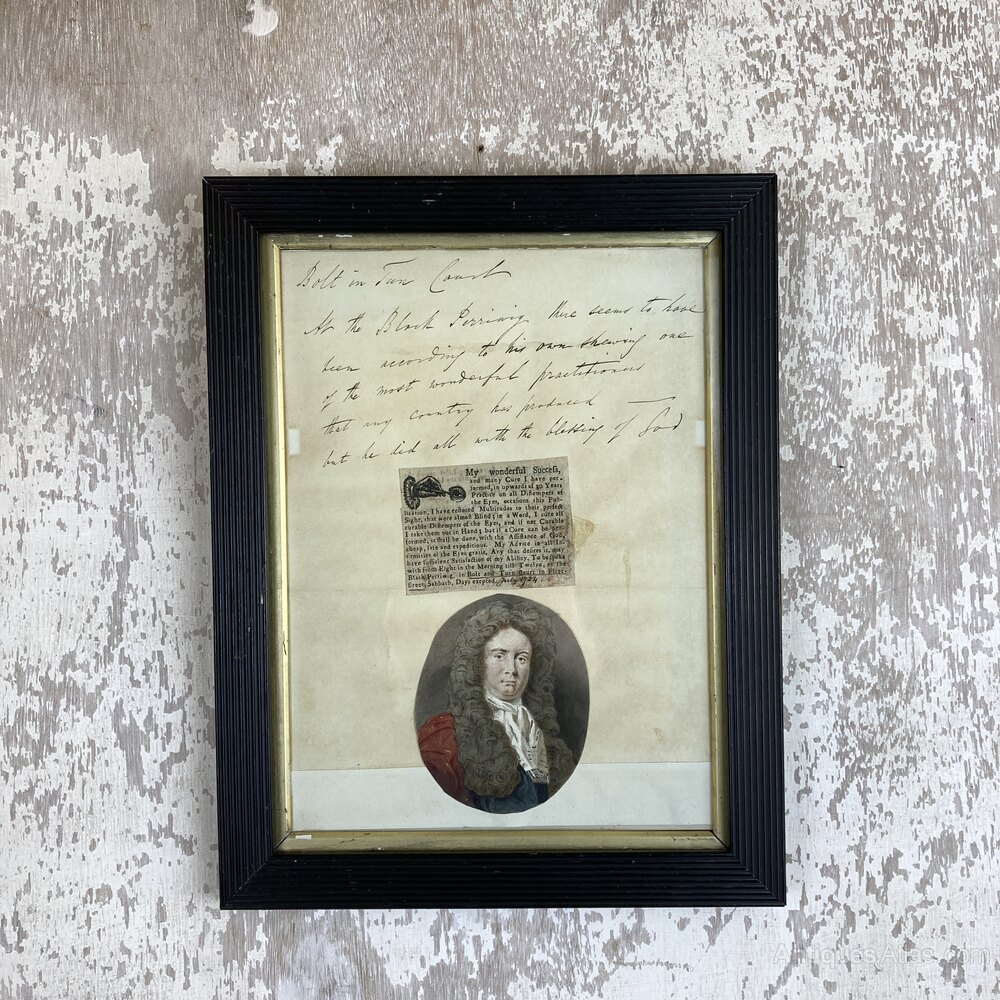 Bolt in Tun Court
At the Black Perriwig there seems to have
been according to his own shewing one
of the most wonderful practitioners
that any country has produced —
but he did all with the blessing of God
My wonderful Succeſs,
and many Cure I have per-
formed, in upwards of 30 Years
Practice on all Diſtempers of
the Eyes, occaſions this Pub-
lication, I have reſtored Multitudes to their perfect
Sight, that were almoſt Blind; in a Word, I cure all
curable Diſtempers of the Eyes, and if not Curable
I take them not in Hand; but if a Cure can be per-
formed, it ſhall be done, with the Aſſiſtance of God,
cheap, ſafe and expeditious. My Advice in all In-
firmities of the Eyes gratis. Any that deſires it, may
have ſufficient Satisfaction of my Ability. To be ſpoke
with from Eight in the Morning till Twelve, at the
Black Perriwig in Bolt and Turn Court in Fleet-
ſtreet, Sabbath, Days exepted. July 1724.
AntiquesAtlas.com